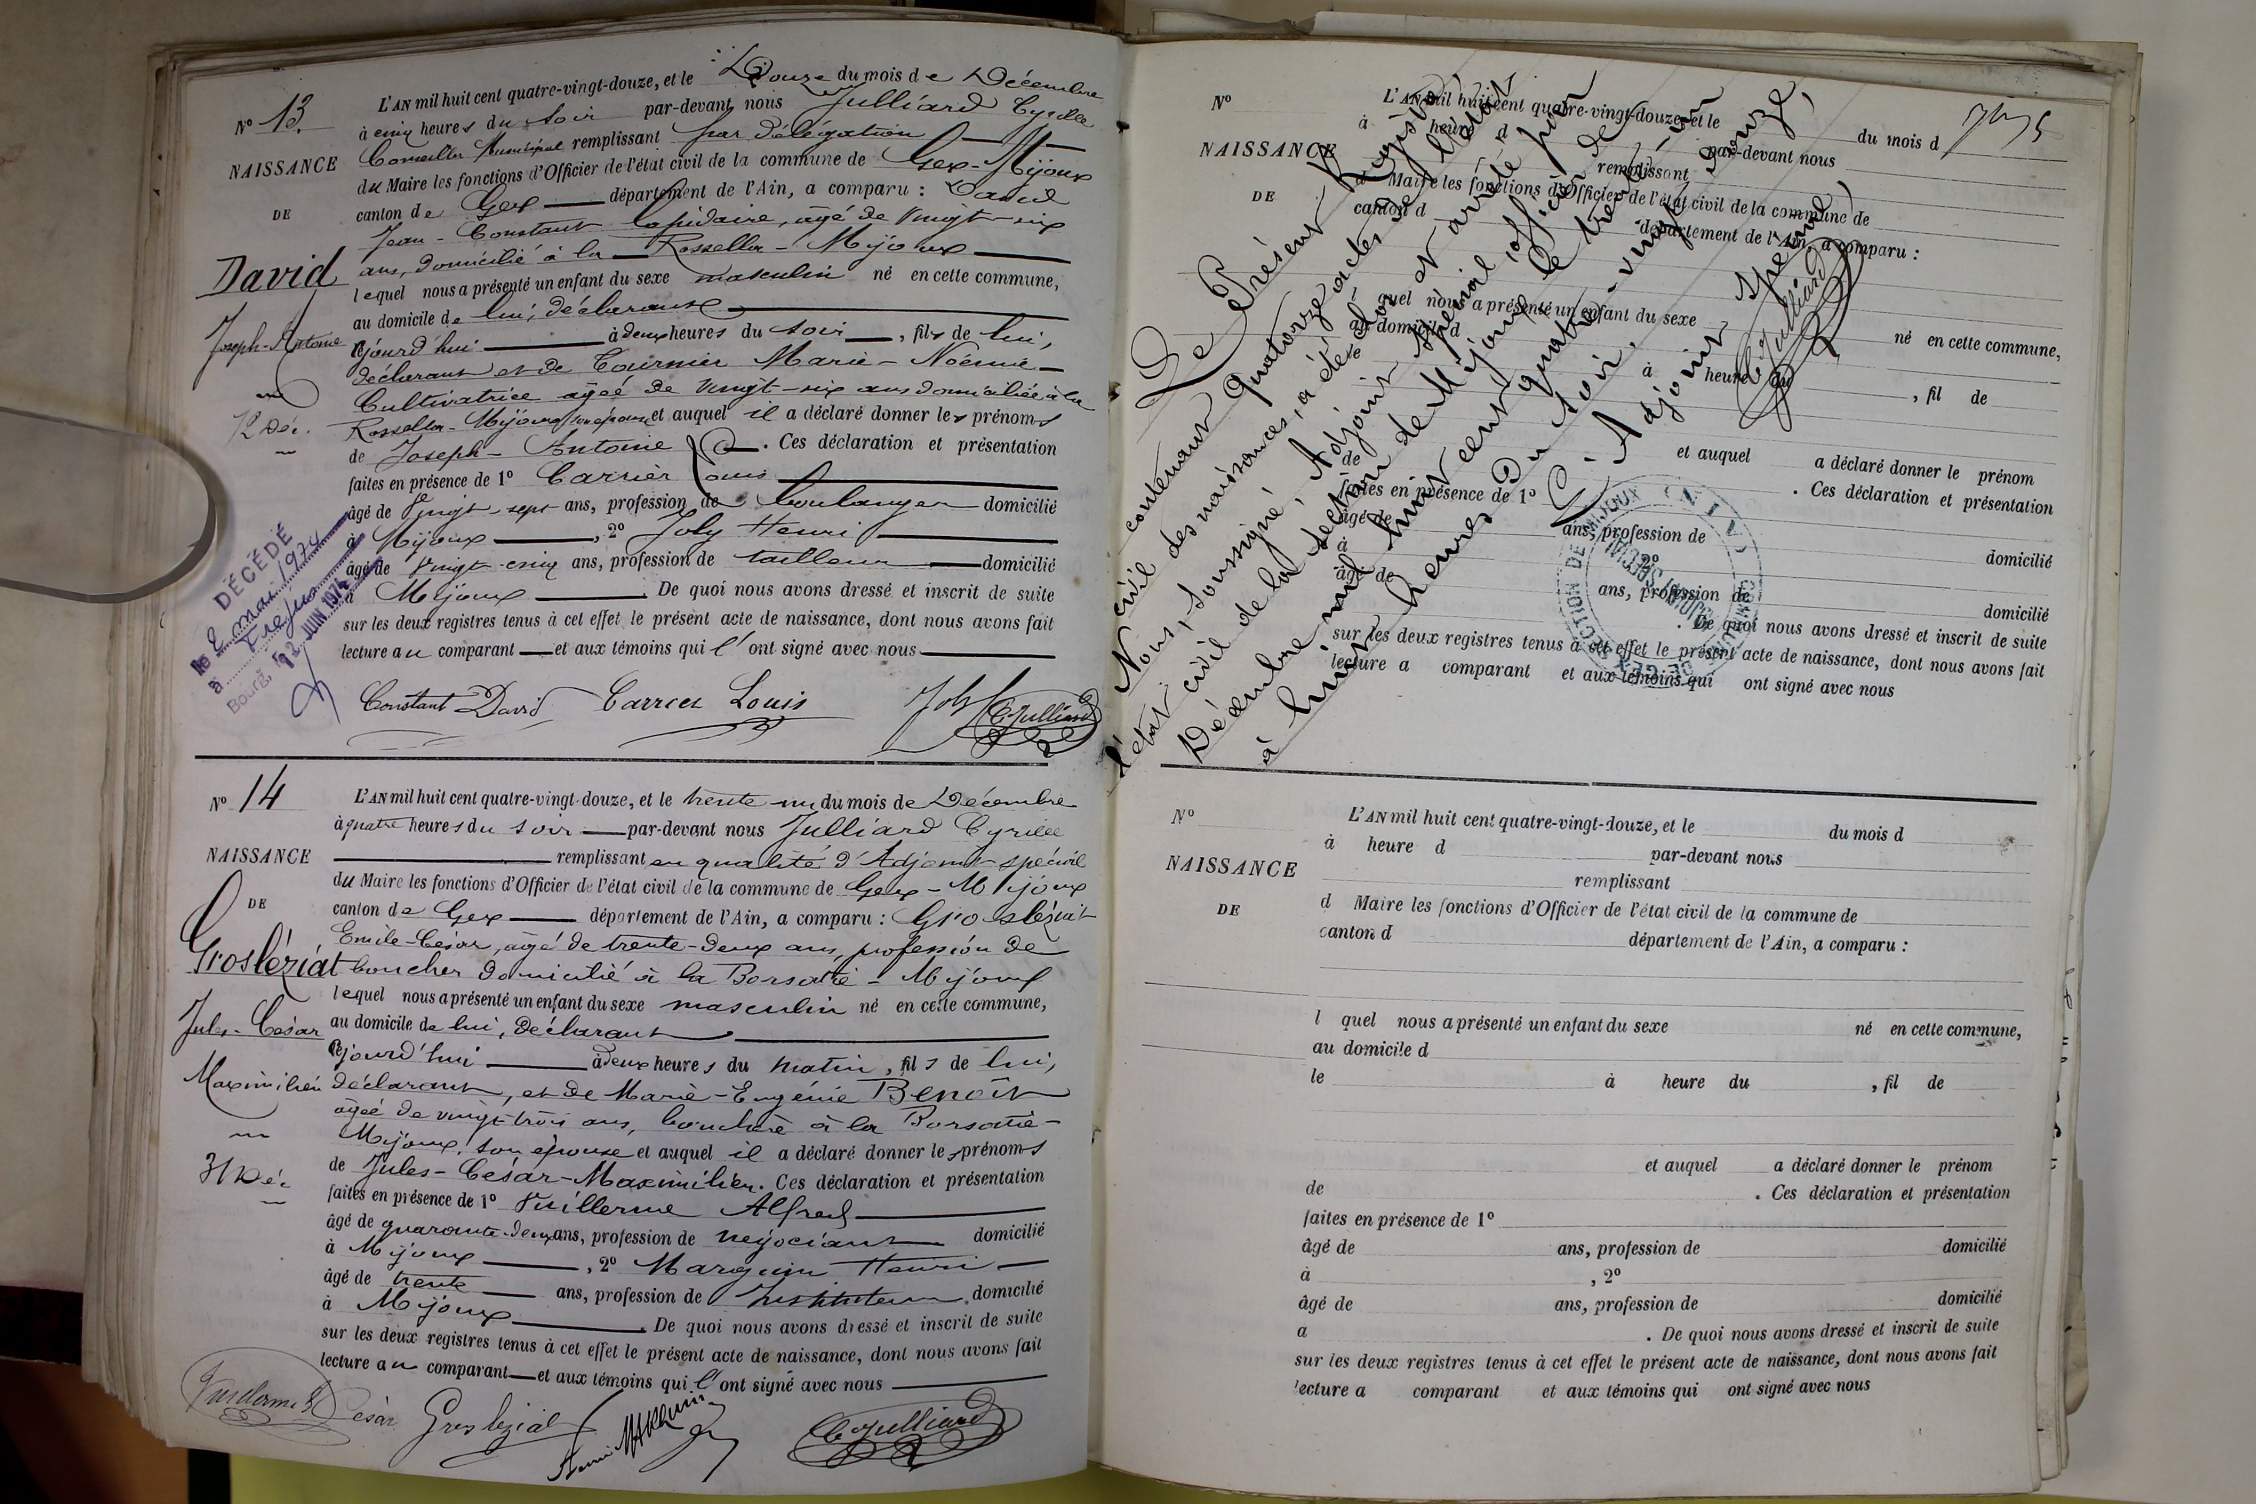 N° 13.
NAISSANCE
DE
David
Joseph-Antoine
12 Déc.
DÉCÉDÉ
le 2 mai 1974
à Frejus
Bourg, le 12 JUIN 1974
L'AN mil huit cent quatre-vingt-douze, et le Douze du mois de Décembre
à cinq heures du soir par-devant nous Julliard Cyrille
Conseiller Municipal remplissant par délégation
du Maire les fonctions d'Officier de l'état civil de la commune de Gex-Mijoux
canton de Gex département de l'Ain, a comparu : David
Jean-Constant lapidaire, âgé de vingt-six
ans, domicilié à la Rossella-Mijoux
lequel nous a présenté un enfant du sexe masculin né en cette commune,
au domicile de lui, déclarant
cejourd'hui à deux heures du soir, fils de lui,
déclarant et de Tournier Marie-Noémie
Cultivatrice âgée de vingt-six ans domiciliée à la
Rossella-Mijoux, son épouse et auquel il a déclaré donner les prénoms
de Joseph-Antoine. Ces déclaration et présentation
faites en présence de 1° Carrier Louis
âgé de Vingt-sept ans, profession de boulanger domicilié
à Mijoux, 2° Joly Henri
âgé de vingt-cinq ans, profession de tailleur domicilié
à Mijoux. De quoi nous avons dressé et inscrit de suite
sur les deux registres tenus à cet effet le présent acte de naissance, dont nous avons fait
lecture au comparant et aux témoins qui l'ont signé avec nous
Constant David Carrier Louis Joly C. Julliard
N° 14
NAISSANCE
DE
Grosléziat
Jules-César
Maximilien
31 Déc
L'AN mil huit cent quatre-vingt-douze, et le trente-un du mois de Décembre
à quatre heures du soir par-devant nous Julliard Cyrille
remplissant en qualité d'Adjoint spécial
du Maire les fonctions d'Officier de l'état civil de la commune de Gex-Mijoux
canton de Gex département de l'Ain, a comparu : Grosléziat
Emile-César, âgé de trente-deux ans, profession de
boucher domicilié à la Borsatie-Mijoux
lequel nous a présenté un enfant du sexe masculin né en cette commune,
au domicile de lui, déclarant
cejourd'hui à deux heures du matin, fils de lui,
déclarant, et de Marie-Eugénie BENOÎT
âgée de vingt-trois ans, bouchère à la Borsatie-
Mijoux, son épouse et auquel il a déclaré donner les prénoms
de Jules-César-Maximilien. Ces déclaration et présentation
faites en présence de 1° Vuillerme Alfred
âgé de quarante-deux ans, profession de négociant domicilié
à Mijoux, 2° Marguin Henri
âgé de trente ans, profession de Instituteur domicilié
à Mijoux. De quoi nous avons dressé et inscrit de suite
sur les deux registres tenus à cet effet le présent acte de naissance, dont nous avons fait
lecture au comparant et aux témoins qui l'ont signé avec nous
César Grosleziat Henri Marguin C. Julliard
N°
NAISSANCE
DE
L'AN mil huit cent quatre-vingt-douze, et le du mois d
à heure d par-devant nous
remplissant
d Maire les fonctions d'Officier de l'état civil de la commune de
canton d département de l'Ain, a comparu :
l quel nous a présenté un enfant du sexe né en cette commune,
au domicile d
le à heure du , fil de
et auquel a déclaré donner le prénom
de . Ces déclaration et présentation
faites en présence de 1°
âgé de ans, profession de domicilié
à , 2°
âgé de ans, profession de domicilié
. De quoi nous avons dressé et inscrit de suite
sur les deux registres tenus à cet effet le présent acte de naissance, dont nous avons fait
lecture a comparant et aux témoins qui ont signé avec nous
Le Présent Registre
contenant quatorze actes de l'état
civil des naissances, a été clos et arrêté par
Nous, soussigné, Adjoint spécial, officier de
l'état civil de la section de Mijoux le trente un
Décembre mil huit cent quatre-vingt douze,
à huit heures du soir.
L'Adjoint spécial
C. Julliard
N°
NAISSANCE
DE
L'AN mil huit cent quatre-vingt-douze, et le du mois d
à heure d par-devant nous
remplissant
d Maire les fonctions d'Officier de l'état civil de la commune de
canton d département de l'Ain, a comparu :
l quel nous a présenté un enfant du sexe né en cette commune,
au domicile d
le à heure du , fil de
et auquel a déclaré donner le prénom
de . Ces déclaration et présentation
faites en présence de 1°
âgé de ans, profession de domicilié
à , 2°
âgé de ans, profession de domicilié
a . De quoi nous avons dressé et inscrit de suite
sur les deux registres tenus à cet effet le présent acte de naissance, dont nous avons fait
lecture a comparant et aux témoins qui ont signé avec nous